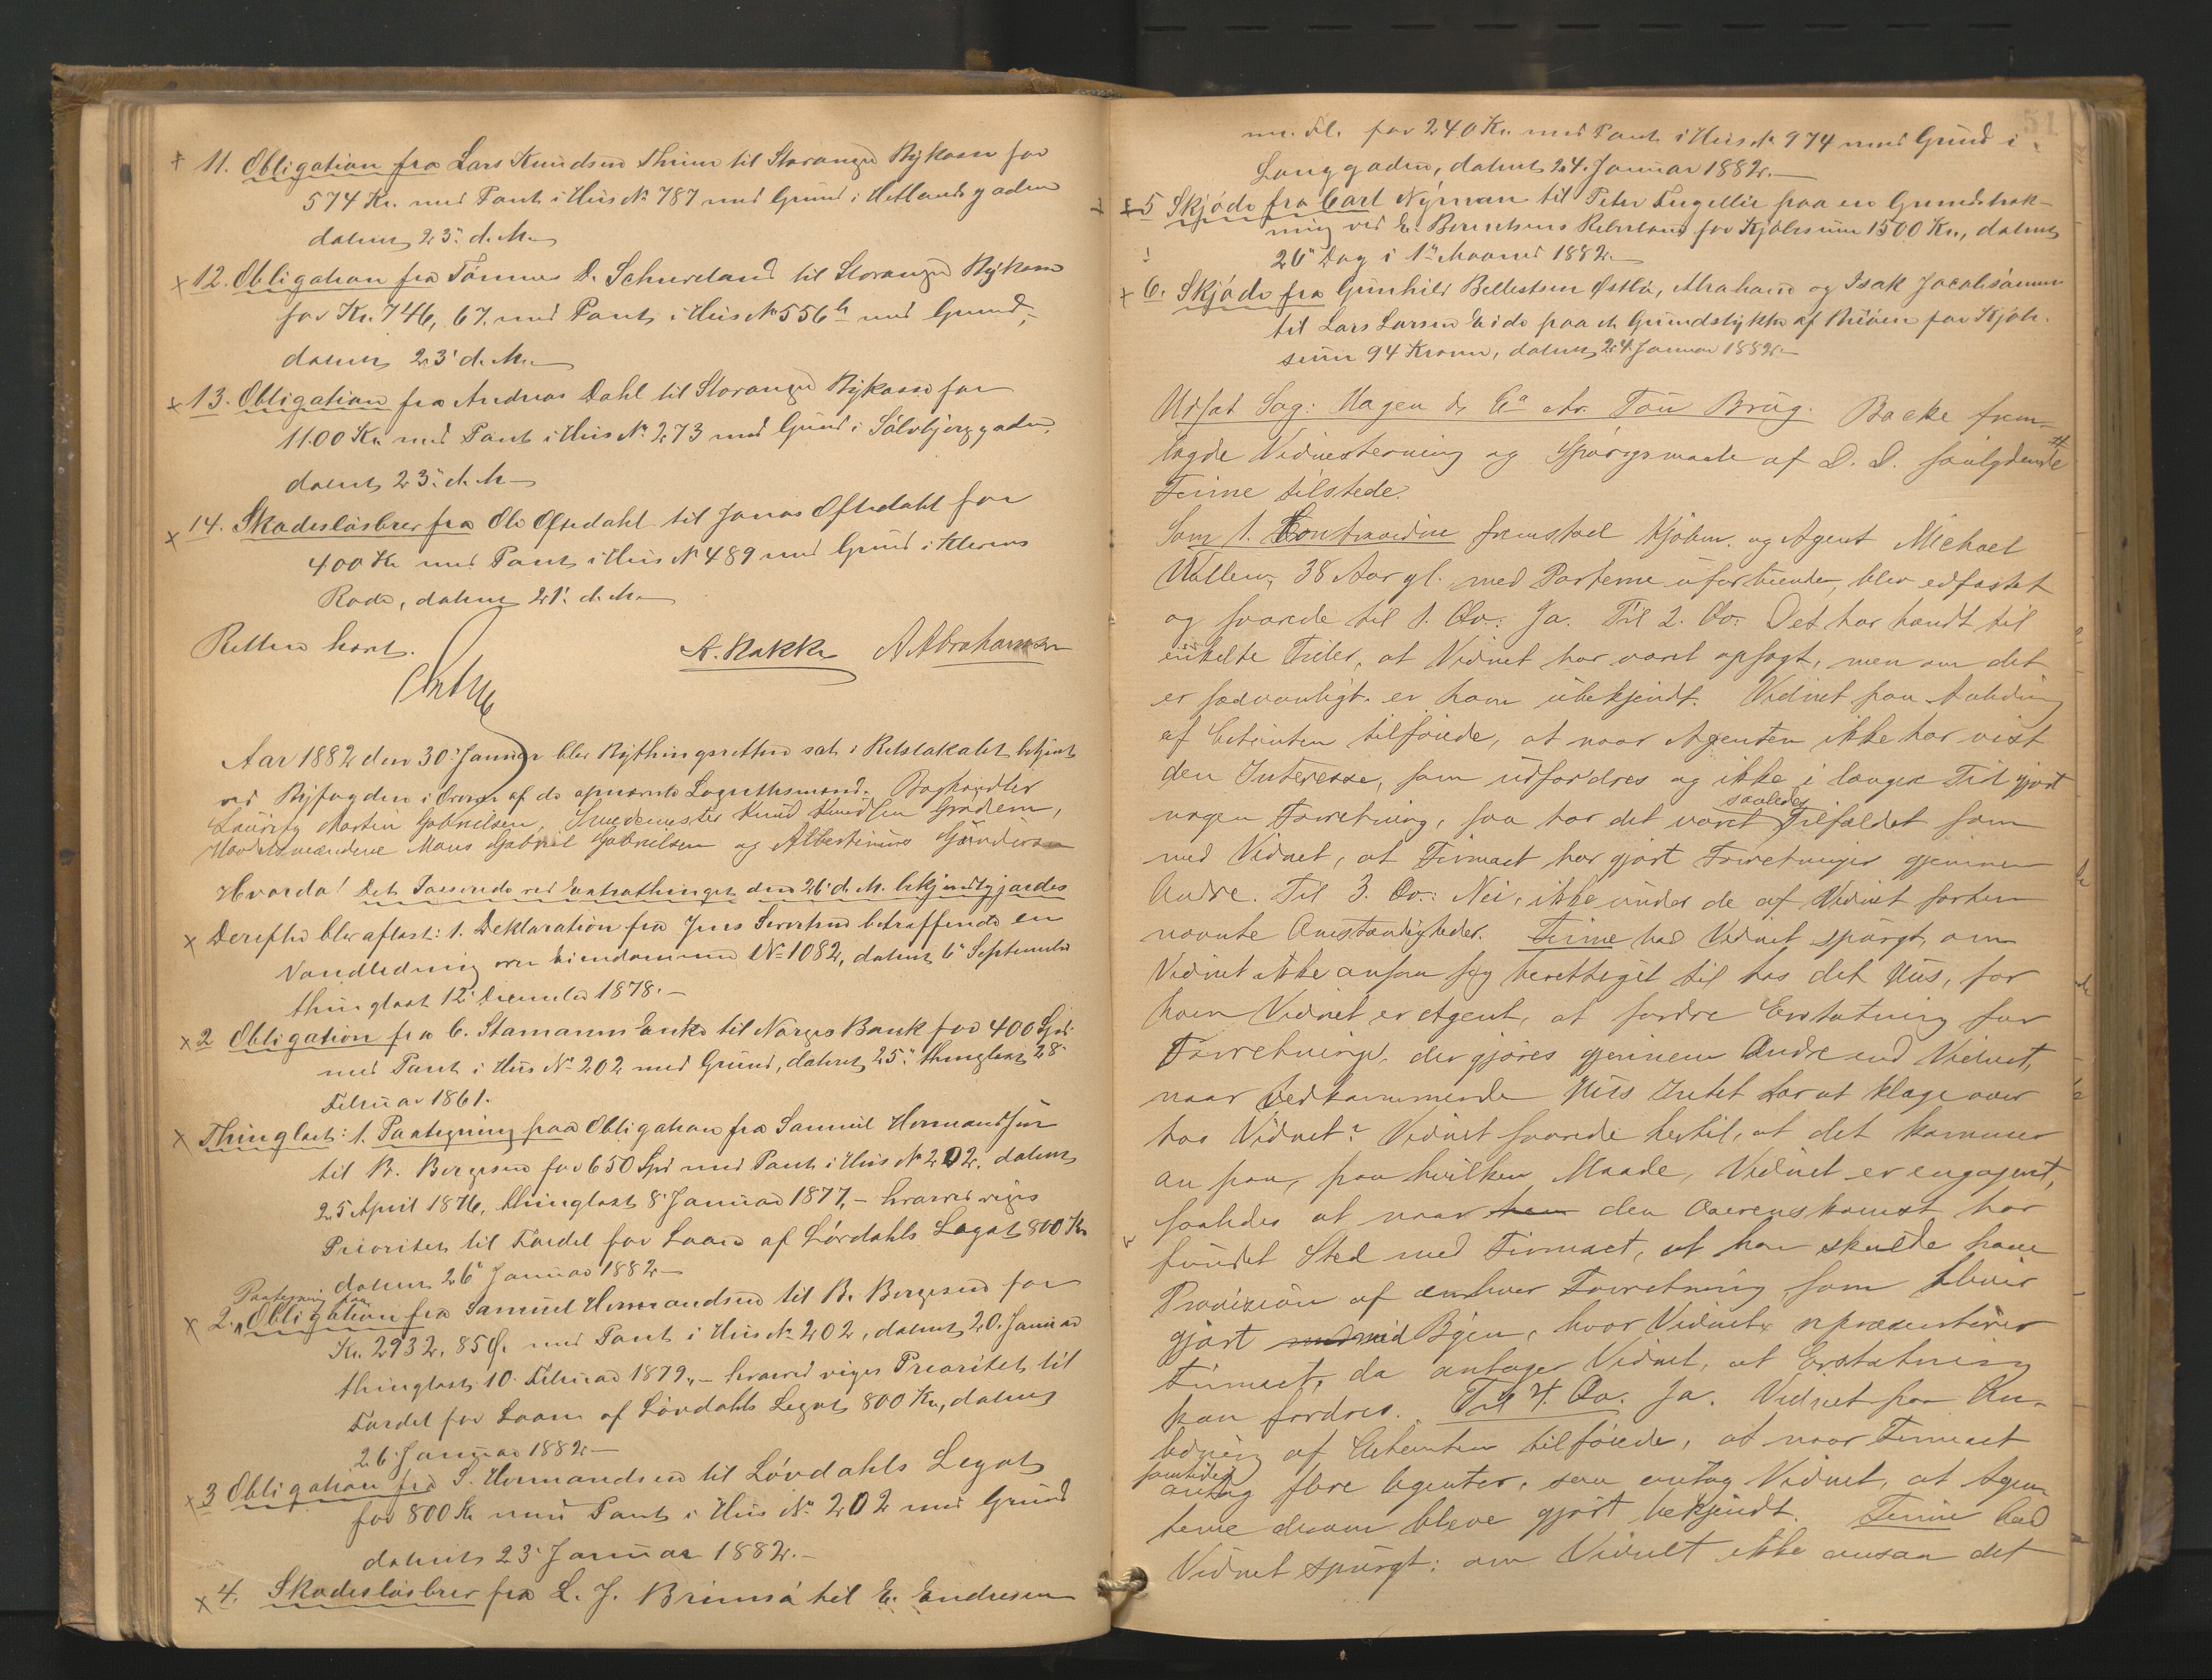 11. Obligation fra Lars Knudsen Thime til Stavanger Bykasse for
574 Kr. med Pant i Huus No 787 med Grund i Hetlandsgaden
dateret 23. d. M.
12. Obligation fra Tønnes D. Schieveland til Stavanger Bykasse
for Kr. 746, 67. med Pant i Huus No 556b med Grund,
dateret 23' d. M.
13. Obligation fra Andreas Dahl til Stavanger Bykasse for
1100 Kr. med Pant i Huus No 273 med Grund i Sølvbjerggaden,
dateret 23. d. M.
14. Skadesløsbrev fra Ole Oftedahl til Jonas Oftedahl for
400 Kr med Pant i Huus No 489 med Grund i
Rode, dateret 21. d. M.
Retten hævt.
A. Nakke A Abrahamsen
Aar 1882 den 30. Januar blev Bythingsretten sat i Retslokalet betjent
ved Byfogden i Overvær af de opnævnte Laugrettesmænd. Boghandler
Lauritz Martin Gabrielsen, Smedemester Knud Knudsen Gradem,
Mons Gabriel Gabrielsen og Albertinius Gundersen
Hvorda! Det Passerede ved Extrathinget den 26' d. M. bekjendtgjordes
Derefter blev aflæst: 1. Deklaration fra Jens Sivertsen betræffende en
Vandledning over Eiendommen No 1082, dateret 6' September
thinglæst 12' December 1878.
2 Obligation fra C. Stamanns Enke til Norges Bank for 400 Spd.
med Pant i Huus No 202 med Grund, dateret 25. thinglæst 28'
Februar 1861.
Thinglæst: 1. Paategning paa Obligation fra Samuel Hermandsen
til B. Bergesen for 650 Spd med Pant i Huus No 202, dateret
25 April 1876, thinglæst 8' Januar 1877, – hvorved viges
Prioritet til Fordel for Laan af Løvdahls Legat 800 Kr
dateret 26' Januar 1882
Paategning paa
2. Obligation fra Samuel Hermandsen til B. Bergesen for
Kr. 2932, 85 Ø. med Pant i Huus No 202, dateret 20. Januar
thinglæst 10. Februar 1879, – hvorved viges Prioritet til
Fordel for Laan af Løvdahls Legat 800 Kr, dateret
26. Januar 1882
3 Obligation fra S. Hermandsen til Løvdahls Legat
for 800 Kr med Pant i Huus No 202 med Grund
dateret 23' Januar 1882.
4. Skadesløsbrev fra L. J. Brimsø til E. Endresen
51
m. Fl. for 240 Kr. med Pant i Huus No 974 med Grund i
Langgaden, dateret 24. Januar 1882.
5 Skjøde fra Carl Nyman til Peter Engellie paa en Grundstræk-
ning ved E. Berentsens Reberbane for Kjøbesum 1500 Kr., dateret
26' Dag i 1' Maaned 1882.
6. Skjøde fra Gunhild Bellestsen Østbø, Abraham og Isak Jacobsønner
til Lars Larsen Eide paa et Grundstykke af for Kjøbe-
sum 94 Kroner, dateret 24. Januar 1882
Udsat Sag: Hagen & Co ctr. Tou Brug. Backe frem-
lagde Vidnestevning og Spørgsmaale af D. D. saalydende
Finne tilstede.
Som 1. Contravidne fremstod Kjøbm. og Agent Michael
Wallem, 38 Aar gl. med Parterne ubeslægtet, blev edfæstet
og svarede til 1. Qv.: Ja. Til 2. Qv. Det har hændt til
enkelte Tider, at Vidnet har været opsagt, men om det
er sædvanligt er ham ubekjendt. Vidnet paa Anledning
af Citanten tilføiede, at naar Agenten ikke har vist
den Interesse, som udfordres og ikke i længere Tid gjort
nogen Forretning, saa har det været saaledes Tilfældet som
med Vidnet, at Firmaet har gjort Forretninger gjennem
Andre. Til 3. Qv.: Nei, ikke under de af Vidnet foran
nævnte Omstændigheder. Finne bad Vidnet spurgt, om
Vidnet ikke ansaa sig berettiget til hos det Huus, for
hvem Vidnet er Agent, at fordre Erstatning for
Forretninger, der gjøres gjennem Andre end Vidnet,
naar Vedkommende Huus Intet har at klage over
hos Vidnet? Vidnet svarede hertil, at det kommer
an paa, paa hvilken Maade, Vidnet er engageret,
saaledes at naar den Overenskomst har
fundet Sted med Firmaet, at han skulde have
Provision af enhver Forretning som bliver
gjort med Byen, hvor Vidnet repræsenterer
Firmaet, da antager Vidnet, at Erstatning
kan fordres. Til 4. Qv. Ja. Vidnet paa An-
ledning af Citanten tilføiede, at naar Firmaet
samtidig antog flere Agenter, saa antog Vidnet, at Agen-
terne derom bleve gjort bekjendt. Finne bad
Vidnet spurgt: om Vidnet ikke ansaa det